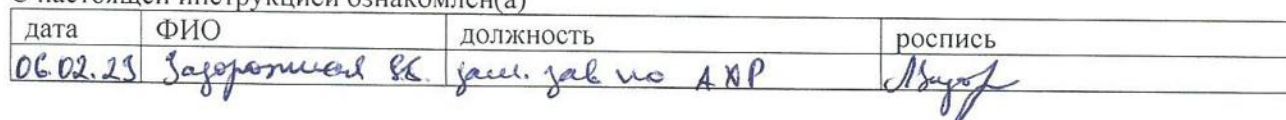 С настоящей инструкцией ознакомлен(а)
дата ФИО должность роспись
06.02.23 Задорожная зам. зав по АХР